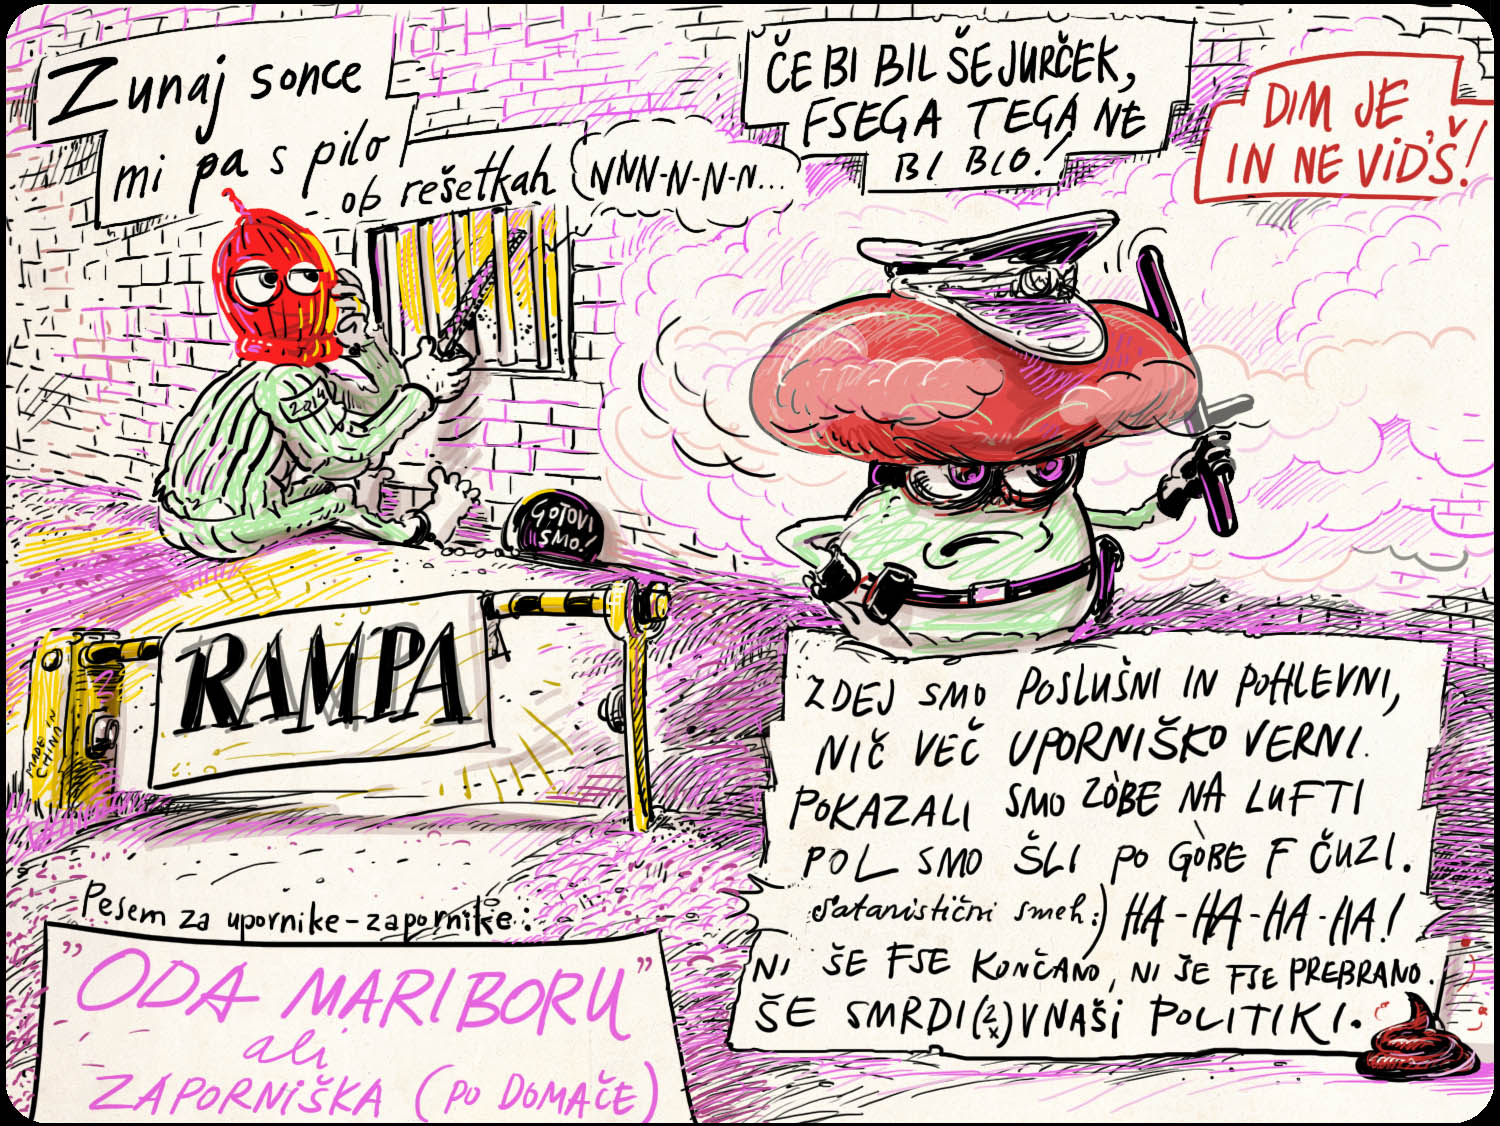 Zunaj sonce
mi pa s pilo
ob rešetkah
NNN-N-N-N...
ČE BI BIL ŠE JURČEK,
FSEGA TEGA NE
BI BLO!
DIM JE,
IN NE VID'Š!
2014
GOTOVI
SMO!
RAMPA
MADE IN
CHINA
ZDEJ SMO POSLUŠNI IN POHLEVNI,
NIČ VEČ UPORNIŠKO VERNI.
POKAZALI SMO ZOBE NA LUFTI
POL SMO ŠLI PO GOBE F ČUZI.
Satanistični smeh:) HA-HA-HA-HA!
NI ŠE FSE KONČANO, NI ŠE FSE PREBRANO.
ŠE SMRDI (2x) V NAŠI POLITIKI.
Pesem za upornike-zapornike:
"ODA MARIBORU"
ali
ZAPORNIŠKA (PO DOMAČE)